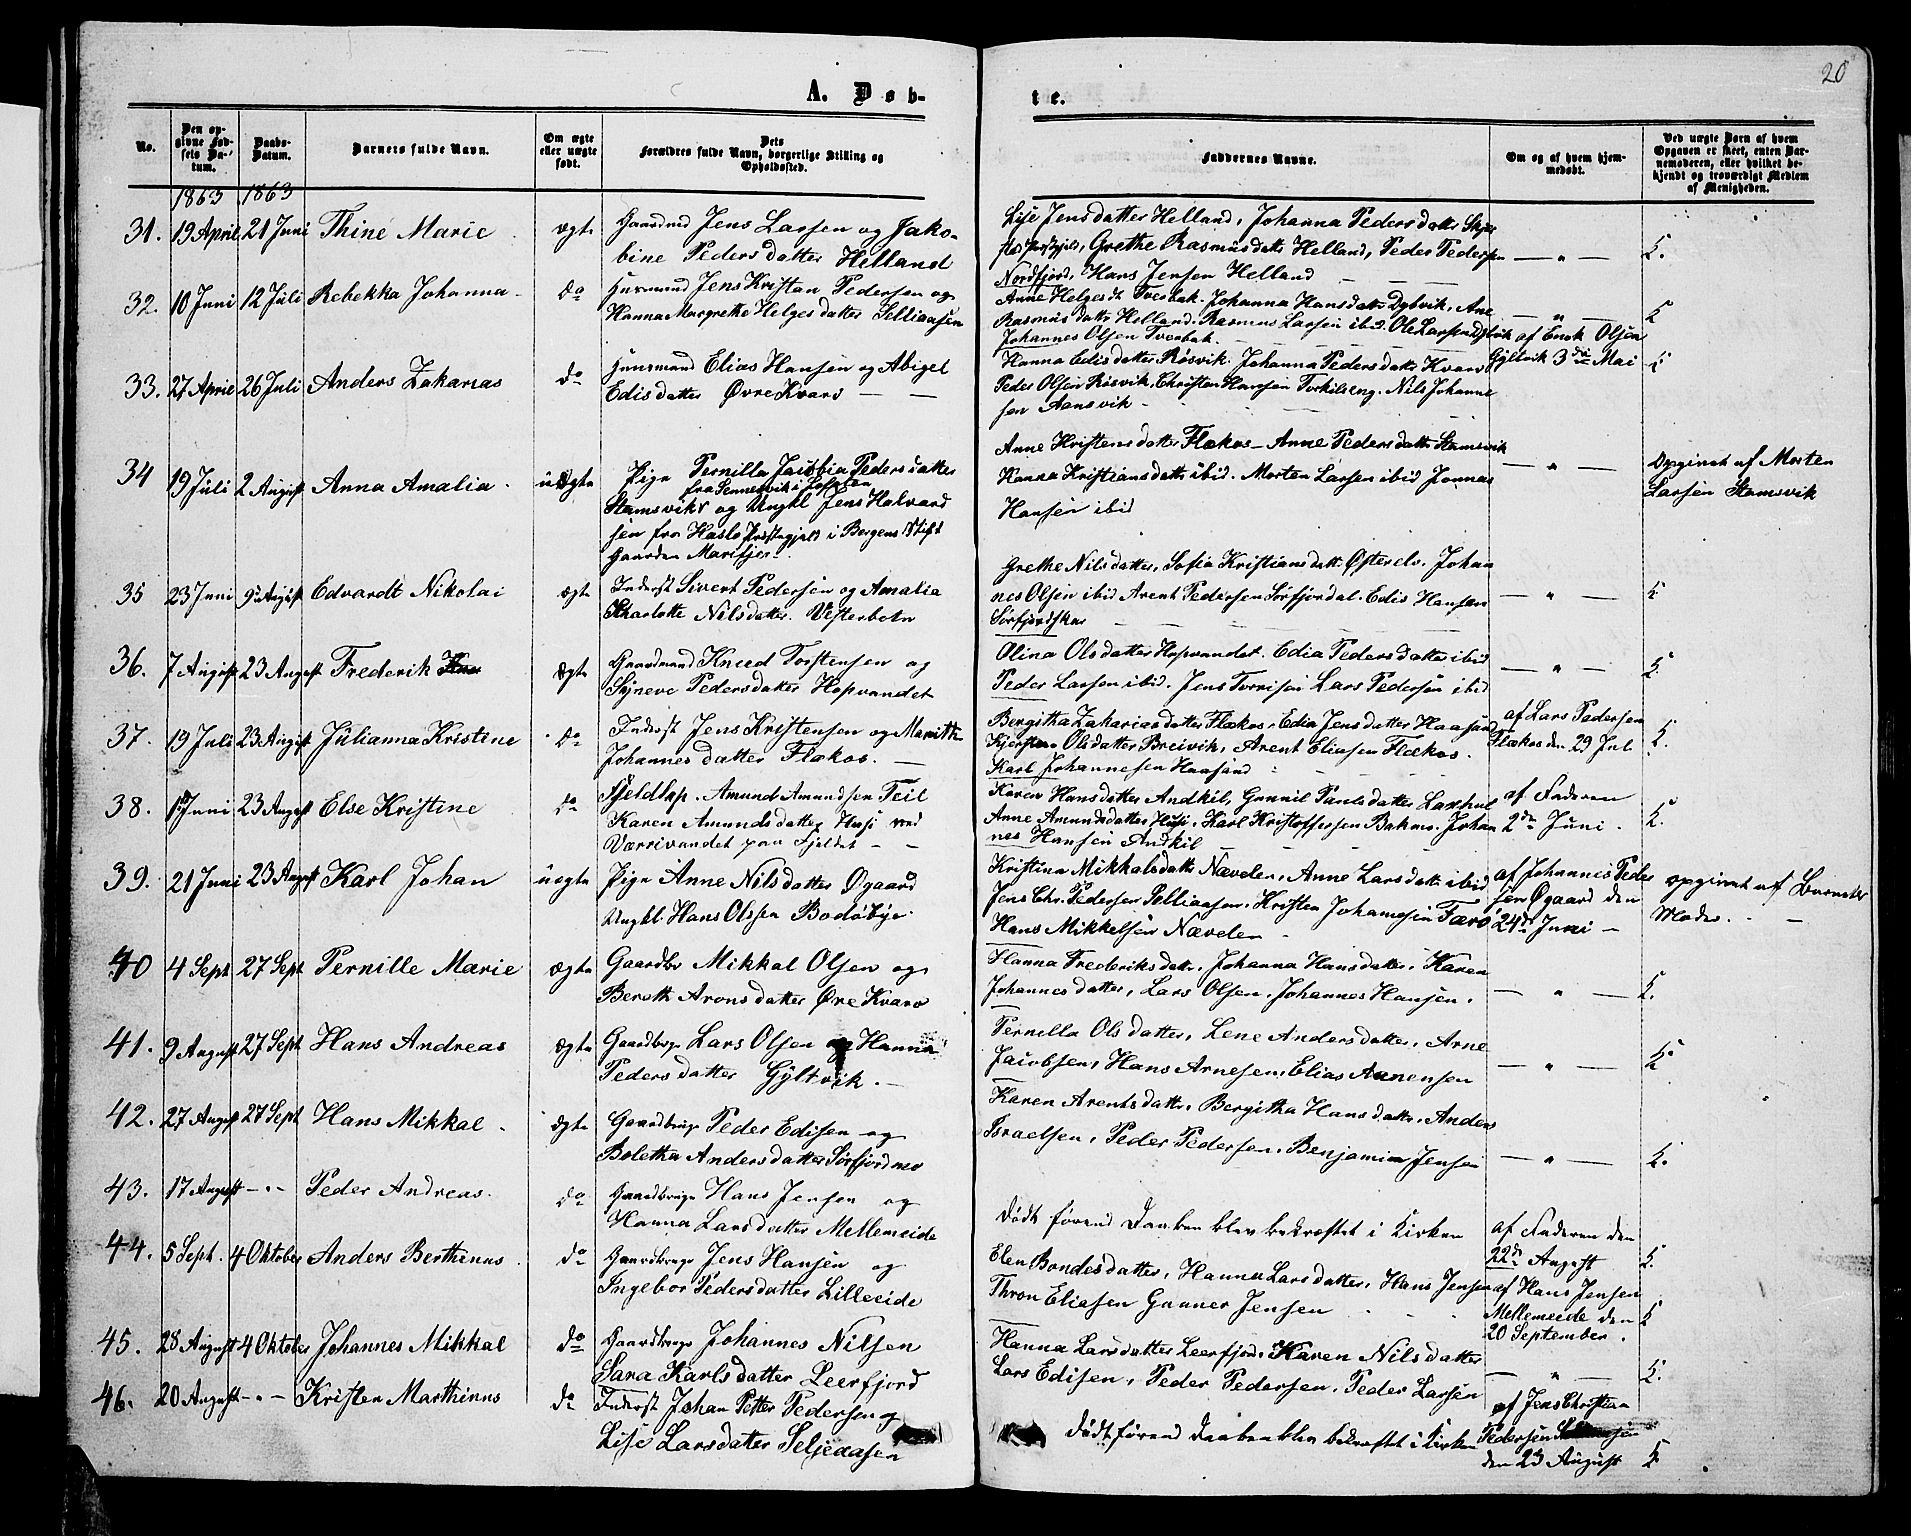 20
A. Døb-
te.
No.
Den op-
givne Fød-
sels Da-
tum.
Daabs-
Datum.
Barnets fulde Navn.
Om ægte
eller uægte
født.
Dets
Forældres fulde Navn, borgerlige Stilling og
Opholdssted.
Faddernes Navne.
Om og af hvem hjem-
medøbt.
Ved uægte Børn af hvem
Opgaven er skeet, enten Bar-
nemoderen, eller hvilket be-
kjendt og troværdigt Medlem
af Menigheden.
1863 1863
31. 19 April 21 Juni Thine Marie ægte Gaardmd Jens Larsen og Jako-
bine Pedersdatter Helland
Lise Jensdatter Helland, Johanna Pedersdatter
Grethe Rasmusdatt Helland, Peder Pedersen
Nordfjord. Hans Jensen Helland
— " — K.
32. 10 Juni 12 Juli Rebekka Johanna do Husmand Jens Kristan Pedersen og
Hanna Margrethe Helgesdatter Selliaasen
Anne Helgesdt Tverbak. Johanna Hansdatt Dybvik, Ane
Rasmusdatt Helland. Rasmus Larsen ibid. Ole Larsen
Johannes Olsen Tverbak.
— " — K
33. 27 April 26 Juli Anders Zakarias do Huusmand Elias Hansen og Abigel
Edisdatter Øvre Kvarv — —
Hanna Edisdatter Røsvik. Johanna Pedersdatt Kvarv
Peder Olsen Røsvik, Christen Hansen Torkilseng. Nils Johanne
sen Aansvik
af Enok Olsen
Gyltvik 3de Mai K
34 19 Juli 2 August Anna Amalia uægte Pige Pernilla Jacobia Pedersdatter
fra Sennesvik i Lofoten
Stamsvik og Ungkl Jens Halvard
sen fra Haslo Præstegjeld i Bergens Stift
Gaarden Marifjær.
Anne Kristensdatter Flækos – Anne Pedersdatt Stamsvik
Hanna Kristiansdatt ibid. Morten Larsen ibid Jonnas
Hansen ibid
— " —
Opgivet af Morten
Larsen Stamsvik
35 23 Juni 9 August Edvardt Nikolai ægte Inderst Sivert Pedersen og Amalia
Kharlotte Nilsdatter. Vesterbotn
Grethe Nilsdatter, Sofia Kristiansdatt. Johan
nes Olsen ibid Arent Pedersen Sørfjordal. Edis Hansen
Sørfjordskar
— " — K
36. 7 August 23 August Frederik ægte Gaardmand Knud Torstensen og
Synneve Pedersdatter Hopvandet
Olina Olsdatter Hopvandet. Edia Pedersdatter ibid
Peder Larsen ibid. Jens Torrisen Lars Pedersen ibid
— " — K.
37. 19 Juli 23 August Julianna Kristine do Inderst Jens Kristensen og Marith
Johannesdatter Flækos. —
Bergitha Zakariasdatter Flækos. Edia Jensdatter Haasand
Kjersten Olsdatter Breivik, Arent Eliasen Flækos.
Karl Johannesen Haasand
af Lars Pedersen
Flækos den 29 Jul. K.
38. 1 Juni 23 August Else Kristine do Fjeldlap. Amund Amundsen Feil
Karen Amundsdatter Husi ved
Værrivandet paa Fjeldet — —
Karen Hansdatter Andkil, Gunnil Paulsdatter Laxhul
Anne Amundsdatter Husi. Karl Kristoffersen Bakmo. Johan
nes Hansen Andkil
af Faderen
2den Juni. K.
39. 21 Juni 23 August Karl Johan uægte Pige Anne Nilsdatter Øgaard
Ungkl. Hans Olssen Bodøbye.
Kristina Mikkalsdatt Nævelen, Anne Larsdatt ibid
Jens Chr. Pedersen Selliaasen, Kristen Johannesen Færø
Hans Mikkelsen Nævelen
af Johannis Peder
sen Øgaard den
24de Juni —
opgivet af Barnets
Moder. —
40 4 Sept 27 Sept Pernille Marie ægte Gaardbr Mikkal Olsen og
Bereth Aronsdatter Øvre Kvarv
Hanna Frederiksdatt. Johanna Hansdatter. Karen
Johannesdatter, Lars Olsen. Johannes Hansen.
— " — K.
41. 9 August 27 Sept Hans Andreas ægte Gaardbrug Lars Olsen og Hanna
Pedersdatter Gyltvik. —
Pernilla Olsdatter, Lene Andersdatter. Arne
Jacobsen, Hans Arnesen, Elias Annensen
— " — K
42. 27 August 27 Sept Hans Mikkal ægte Gaardbrug Peder Edisen og
Boletha Andersdatter Sørfjordmo
Karen Arentsdatt. Bergitha Hansdatt. Anders
Israelsen. Peder Pedersen. Benjamin Jensen
— " — K.
43. 17 August — " — Peder Andreas. do Gaardbrug Hans Jensen og
Hanna Larsdatter Mellemeide
Dødt førend Daaben blev bekræftet i Kirken
af Faderen den
22de August K.
44. 5 Sept. 4 Oktober Anders Berthinus do Gaardbrug Jens Hansen og
Ingebor Pedersdatter Lilleeide
Elen Bondesdatter, Hanna Larsdatter, Hans Jensen
Thron Eliasen Gunner Jensen
af Hans Jensen
Mellemeide den
20 September. K
45. 28 August 4 Oktober Johannes Mikkal do Gaardbrug Johannes Nilsen
Sara Karlsdatter Leerfjord
Hanna Larsdatter Leerfjord. Karen Nilsdatter
Lars Edisen, Peder Pedersen. Peder Larsen
— " — K.
46. 20 August — " — Kristen Marthinus do Inderst Johan Petter Pedersen og
Lise Larsdatter Seljeaasen
Dødt førend Daaben blev bekræftet i Kirken
af Jens Christian
Pedersen
den 23 August K